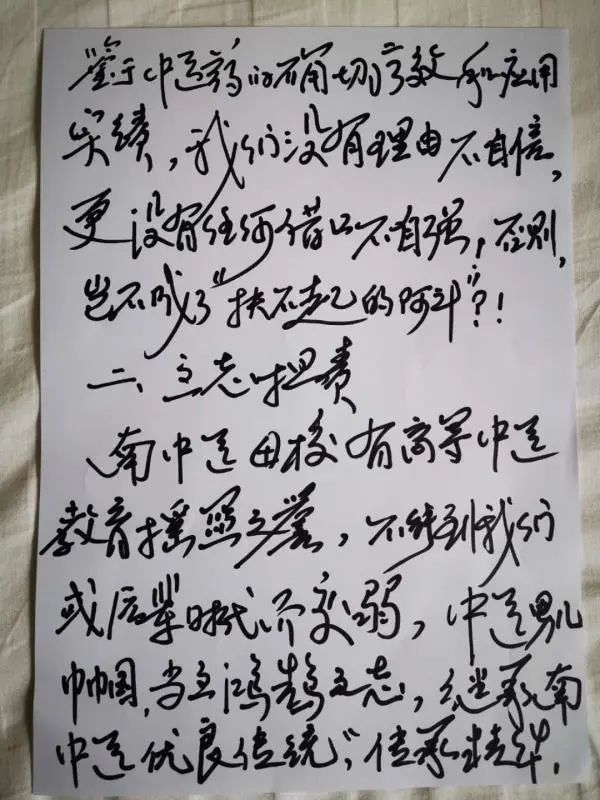 鉴于中医药的确切疗效和应用
实绩,我们没有理由不自信,
更没有任何借口不自强,否则,
岂不成了“扶不起的阿斗”?!
二、立志担责
南中医母校有高等中医
教育摇篮之誉,不能到我们
或后辈时式微变弱,中医男儿
巾帼,当立鸿鹄之志,继承南
中医优良传统,传承精华,